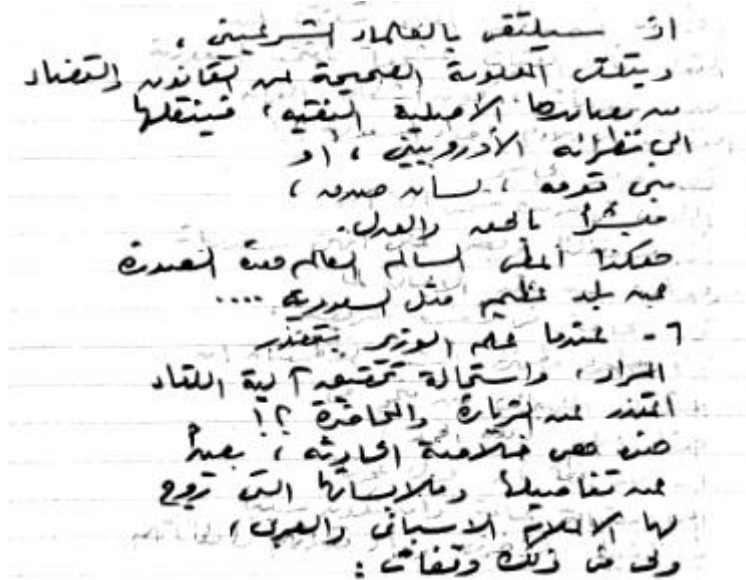 اذ سيلتقى بالعلماء الشرعيين ،
ويتلقى المعلومة الصحيحة عن القانون والقضاء
من مصادرها الأصلية النقية ، فينقلها
الى نظرائه الأوروبيين ، او
بنى قومه ، لسان صدق ،
مبشراً بالحق والعدل .
هكذا أعطى السالم العالم هذه الصورة
عن بلد عظيم مثل السعودية ....
٦ - عندما علم الوزير بتعذر
المراد ، واستحالة تحقيق آلية اللقاء
اعتذر عن الزيارة والمحاضرة ؟!
هذه هى خلاصة الحادثة ، بعيداً
عن تفاصيلها وملابساتها التى تروج
لها الاعلام الاسبانى والعربى ،
ولى فى ذلك وقفات :